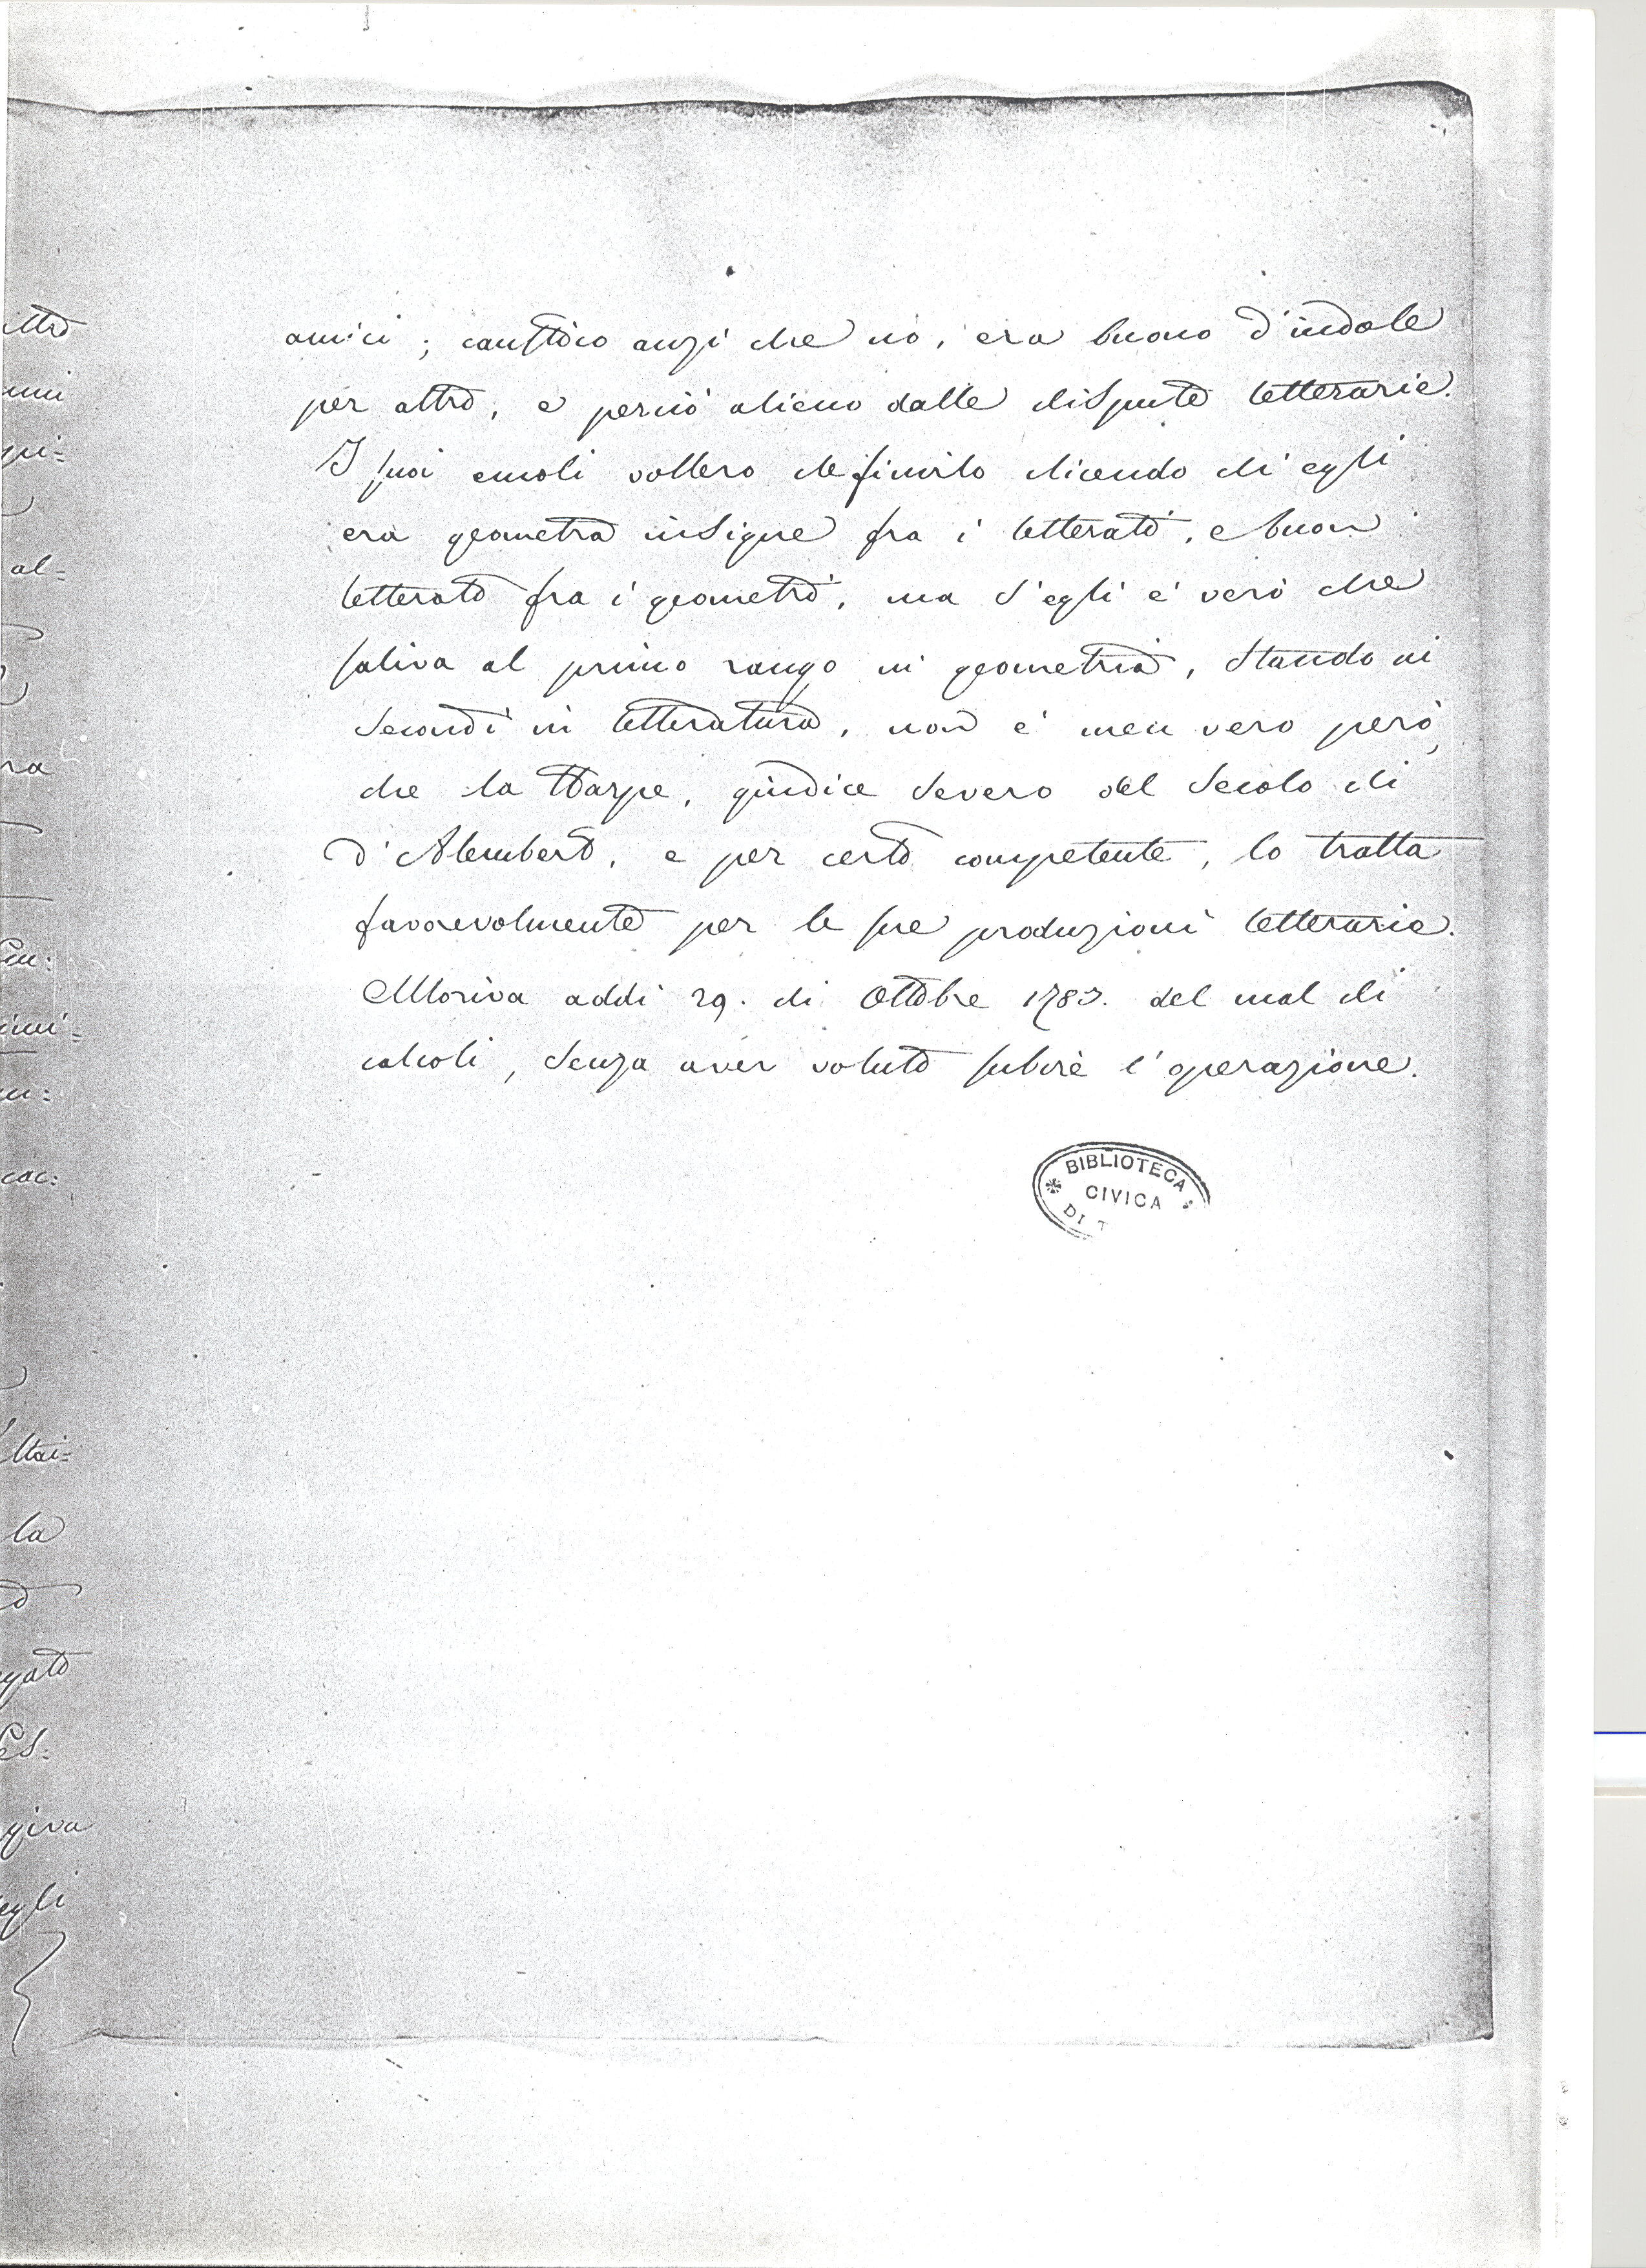 amici; caustico anzi che nò, era buono d'indole
per altro, e perciò alieno dalle dispute letterarie.
I suoi emoli vollero definirlo dicendo ch'egli
era geometra insigne fra i letterati, e buon
letterato fra i geometri, ma s'egli è vero che
saliva al primo rango in geometria, stando ai
secondi in letteratura, non è men vero però,
che la Harpe, giudice severo del secolo di
d'Alembert, e per certo competente, lo tratta
favorevolmente per le sue produzioni letterarie.
Moriva addì 29. di Ottobre 1783. del mal di
calcoli, senza aver voluto subire l'operazione.
BIBLIOTECA
CIVICA
DI T
ltro
al=
ra
la
gato
giva
egli